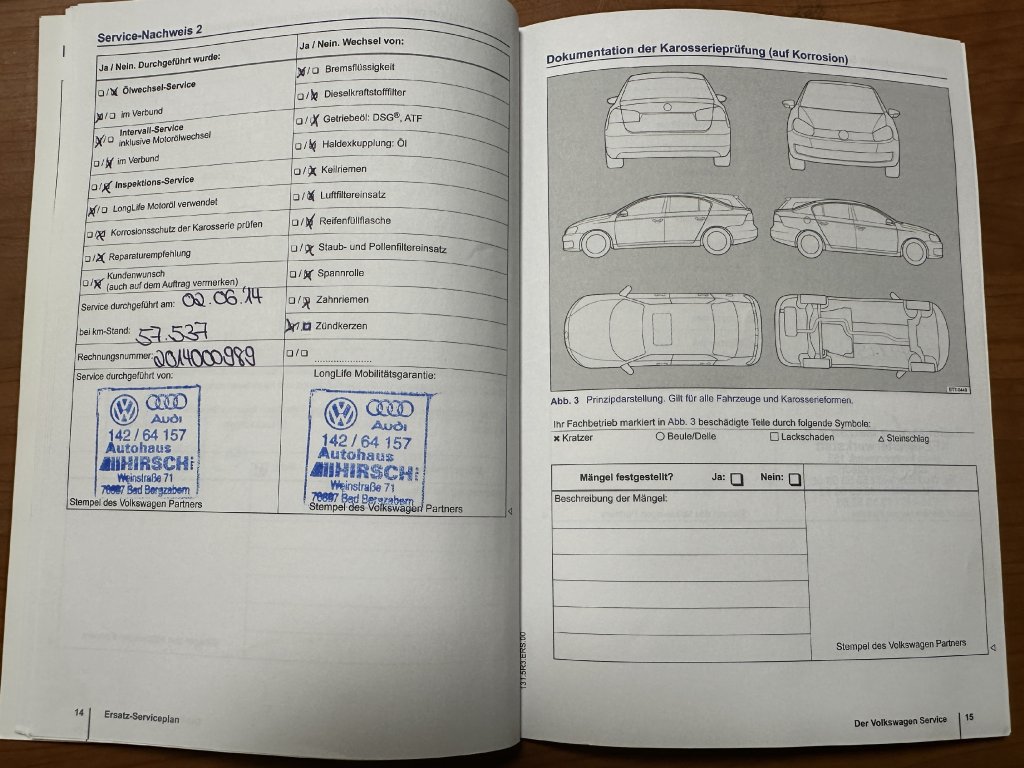 Service-Nachweis 2
Ja / Nein. Durchgeführt wurde:
☐/☒ Ölwechsel-Service
☒/☐ im Verbund
☒/☐ Intervall-Service
inklusive Motorölwechsel
☐/☒ im Verbund
☐/☒ Inspektions-Service
☒/☐ LongLife Motoröl verwendet
☐/☒ Korrosionsschutz der Karosserie prüfen
☐/☒ Reparaturempfehlung
☐/☒ Kundenwunsch
(auch auf dem Auftrag vermerken)
Service durchgeführt am: 02.06.'14
bei km-Stand: 57.537
Rechnungsnummer: 2014000989
Service durchgeführt von:
Audi
142 / 64 157
Autohaus
HIRSCH
Weinstraße 71
Bad Bergzabern
Stempel des Volkswagen Partners
Ja / Nein. Wechsel von:
☒/☐ Bremsflüssigkeit
☐/☒ Dieselkraftstofffilter
☐/☒ Getriebeöl: DSG®, ATF
☐/☒ Haldexkupplung: Öl
☐/☒ Keilriemen
☐/☒ Luftfiltereinsatz
☐/☒ Reifenfüllflasche
☐/☒ Staub- und Pollenfiltereinsatz
☐/☒ Spannrolle
☐/☒ Zahnriemen
☒/☐ Zündkerzen
☐/☐ .....................
LongLife Mobilitätsgarantie:
Audi
142 / 64 157
Autohaus
HIRSCH
Weinstraße 71
Bad Bergzabern
Stempel des Volkswagen Partners
14 Ersatz-Serviceplan
131.5R3.ERS.00
Dokumentation der Karosserieprüfung (auf Korrosion)
Abb. 3 Prinzipdarstellung. Gilt für alle Fahrzeuge und Karosserieformen.
Ihr Fachbetrieb markiert in Abb. 3 beschädigte Teile durch folgende Symbole:
✖ Kratzer ○ Beule/Delle ☐ Lackschaden △ Steinschlag
Mängel festgestellt? Ja: ☐ Nein: ☐
Beschreibung der Mängel:
Stempel des Volkswagen Partners
Der Volkswagen Service 15